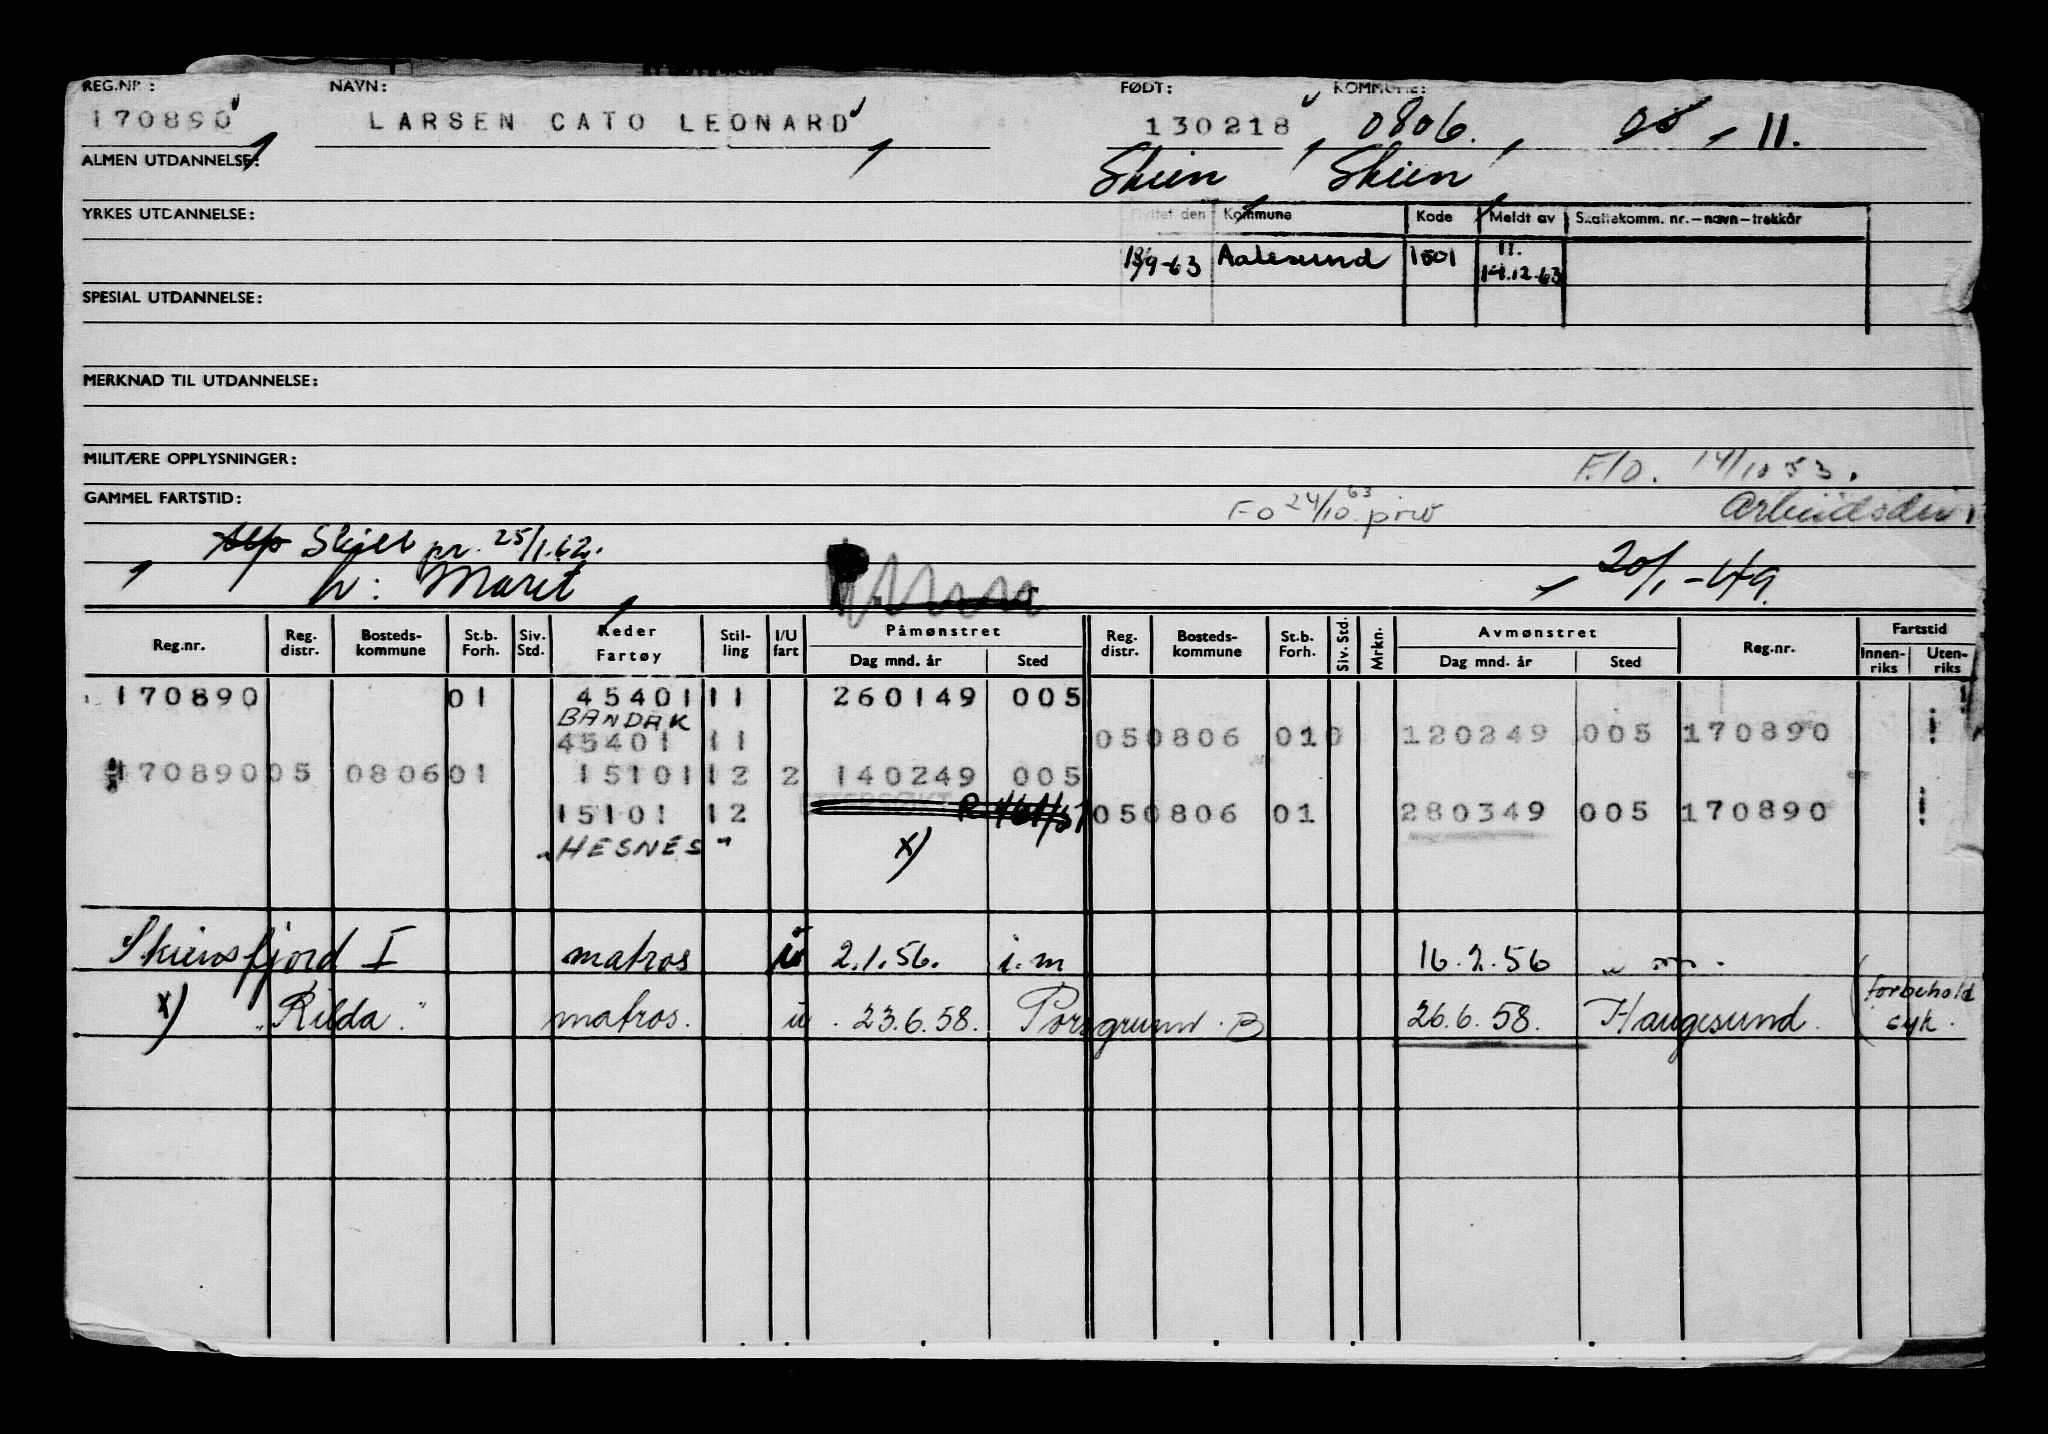 REG.NR.: NAVN: FØDT: KOMMUNE:
170890 LARSEN CATO LEONARD 130218 0806. 05 11.
ALMEN UTDANNELSE: Skien Skien
YRKES UTDANNELSE: Flyttet den Kommune Kode Meldt av Skattekomm. nr.-navn-trekkår
13/9-63 Aalesund 1501 11. 14.12.63
SPESIAL UTDANNELSE:
MERKNAD TIL UTDANNELSE:
MILITÆRE OPPLYSNINGER: F.O. 14/10 53.
GAMMEL FARTSTID: FO 24/10 63 priv
Skilt pr. 25/1.62.
h: Marit 20/1-49.
Reg.nr. Reg. distr. Bosteds- kommune St.b. Forh. Siv. Std. Reder Fartøy Stil- ling I/U fart Påmønstret Dag mnd. år Sted Reg. distr. Bosteds- kommune St.b. Forh. Siv. Std. Mrkn. Avmønstret Dag mnd. år Sted Reg.nr. Fartstid Innen- riks Uten- riks
170890 01 45401 11 260149 005
BANDAK
45401 11 05 0806 010 120249 005 170890
170890 05 0806 01 15101 12 2 140249 005
15101 12 05 0806 01 280349 005 170890
"HESNES" x)
Skiensfjord I matros u 2.1.56. i.m 16.2.56
x) "Rilda" matros. u 23.6.58. Porsgrunn. B 26.6.58. Haugesund. (forbehold
syk.